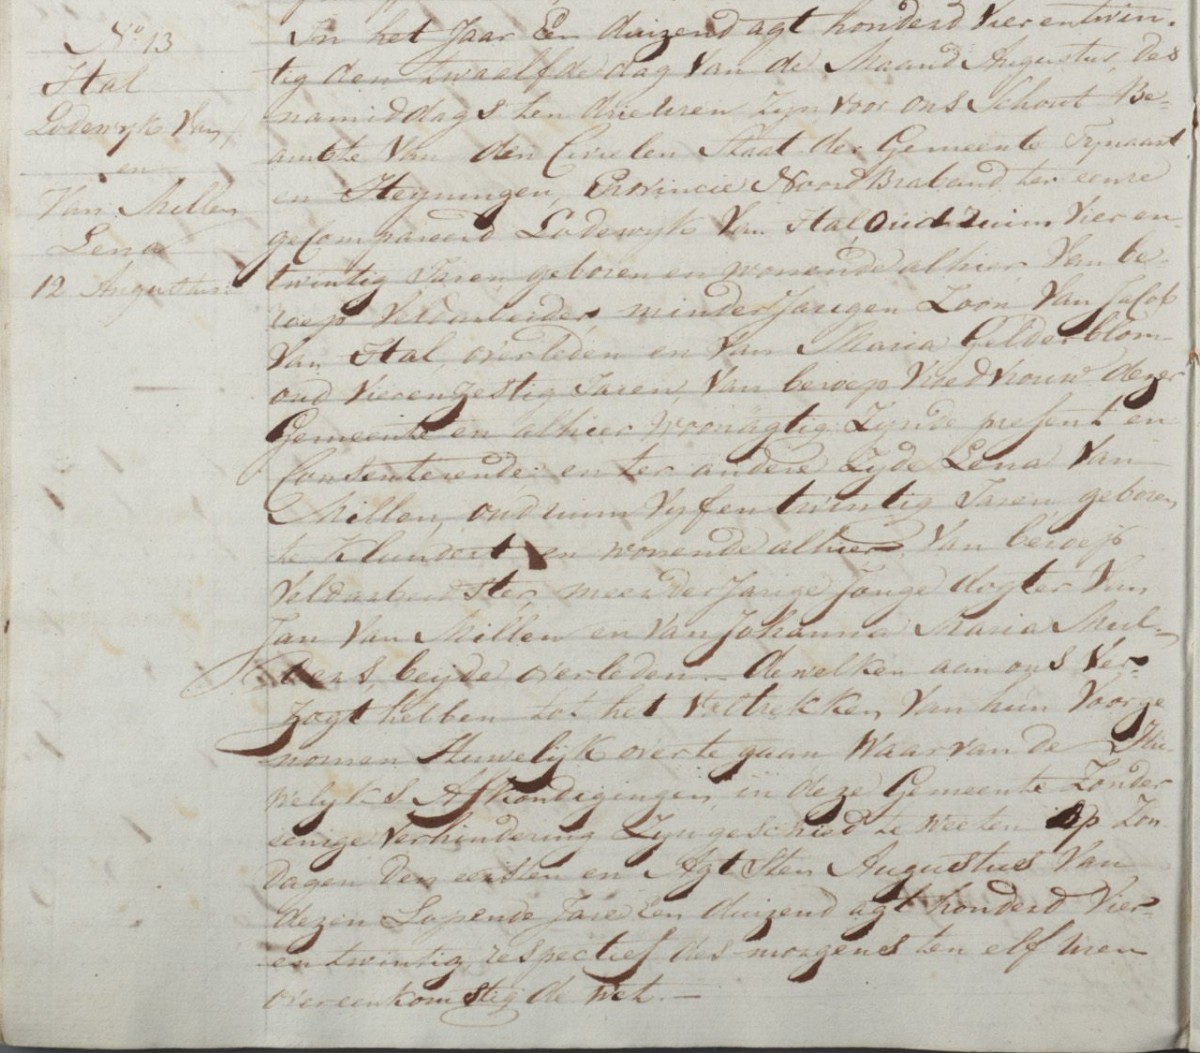 No 13
Stal
Lodewyk Van
en
Van Millen
Lena
12 Augustus
In het Jaar Een duizend agt honderd Vier en twin-
tig den twaalfde dag Van de Maand Augustus, des
namiddags ten drie uren zyn voor ons Schout Be-
ambte Van den Civielen Staat der Gemeente Fynaart
en Heyningen, Provincie Noord Braband, ter eenre
gecompareerd Lodewyk Van Stal Oud ruim Vier en
twintig Jaren, geboren en wonende alhier Van be-
roep Veldarbeider minderjarigen Zoon Van Jacob
Van Stal, overleden en Van Maria Gelderblom
oud vierenzestig Jaren, Van beroep Vroedvrouw dezer
Gemeente en alhier Woonagtig Zynde present en
Consenterende en ter andere Zyde Lena Van
Millen, oud ruim Vyf en twintig Jaren, geboren
te Klundert en wonende alhier Van beroep
Veldarbeidster, meerderjarige Jonge dogter Van
Jan Van Millen en Van Johanna Maria Mul-
ders, beyde overleden. - dewelken aan ons Ver-
zogt hebben tot het Voltrekken Van hun Voorge
nomen Huwelijk over te gaan Waarvan de Hu-
welyks Afkondigingen in deze Gemeente Zonder
eenige Verhindering Zyn geschied te Weeten Op Zon
dagen den eersten en Agtsten Augustus Van
dezen Lopende Jare Een duizend agt honderd Vier-
en twintig, respectief des morgens ten elf uren
overeenkomstig de Wet. -